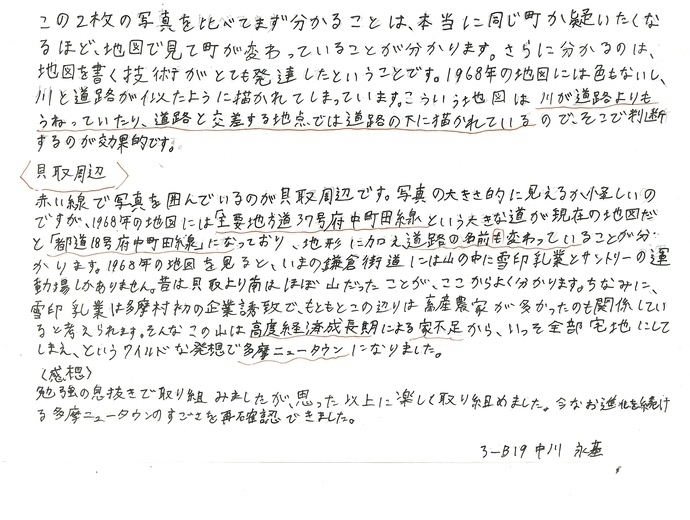 この2枚の写真を比べてまず分かることは、本当に同じ町か疑いたくな
るほど、地図で見て町が変わっていることが分かります。さらに分かるのは、
地図を書く技術がとても発達したということです。1968年の地図には色もないし、
川と道路が似たように描かれてしまっています。こういう地図は川が道路よりも
うねっていたり、道路と交差する地点では道路の下に描かれているので、そこで判断
するのが効果的です。
〈貝取周辺〉
赤い線で写真を囲んでいるのが貝取周辺です。写真の大きさ的に見えるか怪しいの
ですが、1968年の地図には「主要地方道37号府中町田線という大きな道が現在の地図だ
と「都道18号府中町田線」になっており、地形に加え道路の名前も変わっていることが分
かります。1968年の地図を見ると、いまの鎌倉街道には山の中に雪印乳業とサントリーの運
動場しかありません。昔は貝取より南はほぼ山だったことが、ここからよく分かります。ちなみに、
雪印乳業は多摩村初の企業誘致で、もともとこの辺りは畜産農家が多かったのも関係してい
ると考えられます。そんなこの山は高度経済成長期による家不足から、いっそ全部宅地にして
しまえ、というワイルドな発想で多摩ニュータウンになりました。
〈感想〉
勉強の息抜きで取り組みましたが、思った以上に楽しく取り組めました。今なお進化を続け
る多摩ニュータウンのすごさを再確認できました。
3-B19 中川 永基